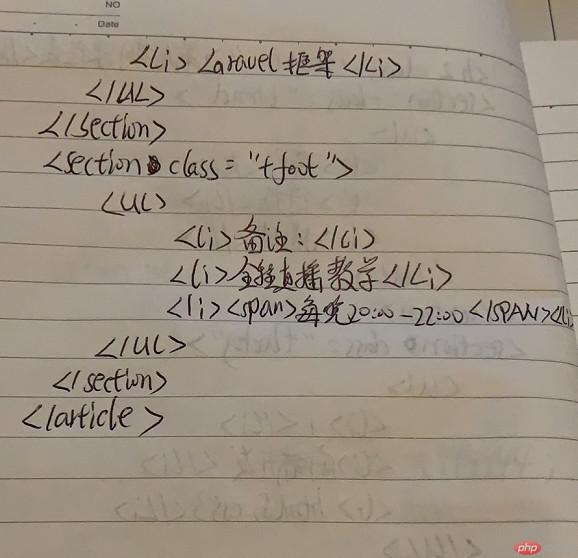 NO
Date
<Li> Laravel框架 </Li>
</UL>
</section>
<section class = "tfoot">
<UL>
<li>备注:</Li>
<li>全程直播教学</Li>
<li><span>每晚20:00-22:00</SPAN><Li>
</UL>
</section>
</article>
php